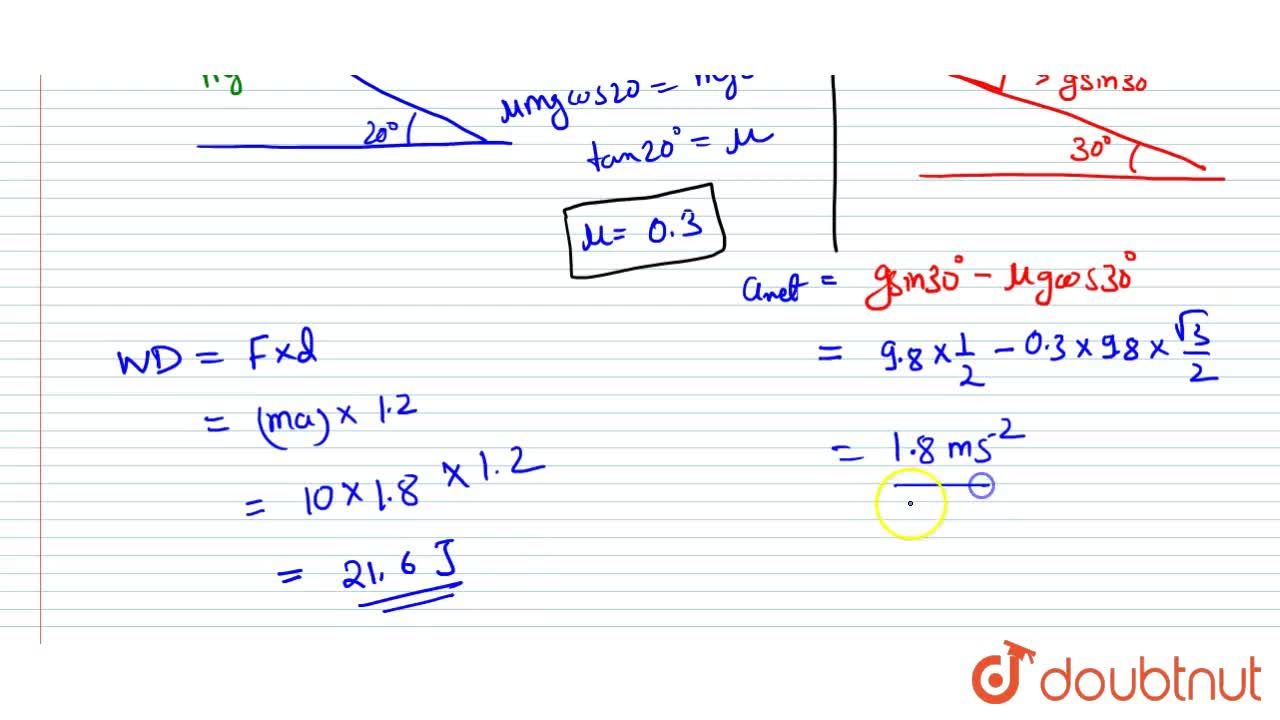 20°
μmgcos20 =
tan20° = μ
μ = 0.3
gsin30
30°
anet = gsin30° - μgcos30°
= 9.8 × 1/2 - 0.3 × 9.8 × √3/2
= 1.8 ms-2
WD = F×d
= (ma) × 1.2
= 10 × 1.8 × 1.2
= 21.6 J
doubtnut